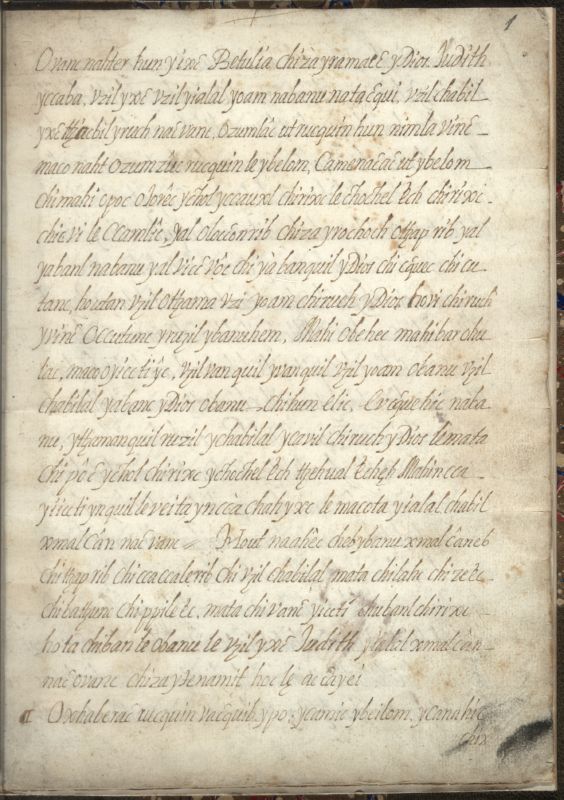 1
Ovanc nahter hun yixê Betulia chiza yramacê y Dios. Judith
yccaba, vzil yxê vzil yialal yoam nabanu nataêqui, vzil chabil
yxê thacbil yruch naêvanc, ozumlâc ut rucquin hun nimla vinê
maco naht ozumzûc rucquin le ybelom, Camenacâc ut ybelom
chi mahi opoc olorêc ychol yccauxl chirixc le chochel êch chirixi
chicvi le Ccamlic, yal oloccon rib chiza yrochoch othap rib yal
yabanl nabanu yal vicê vôc chi yàbanquil y Dios chi cêquec chi cu
tanc, hocdan vzil othama vzi yoam chiruch y Dios hovi chiruch
yvinê Occutunc yruzil ybanuhem, Mahi obehec mahibar ohu
lac, maco oyicti yc, vzil van quil yvanquil vzil yoam obanu vzil
chabilal yabanc y Dios obanu chihun êlic. Er cêquehic naba
nu, ythamanquil ruzil ychabilal yccvil chiruch y Dios lemata
chi pôê ychol chirixc ychochel êch thehual êeheh Mahin cca
yiicti yn quil le veita yn ccà chah yxc le maccta yialal chabil
xmal cán naê vanc Mout na ahêc cheby banu xmal câneb
chi thap rib chi ccaccalerib chi vzil chabilal mata chilahc chizeêc
chi bathunc chippileêc, mata chi vanc yicti chabanl chirixc
hota chiban le obanu le vzil yxê Judith yialal xmal càn
naê ovanc chiza ytenamit hoc le accayei
Oxhaberaê rucquin vaêquih ypo ycamic ybeilom ycanahic
chix